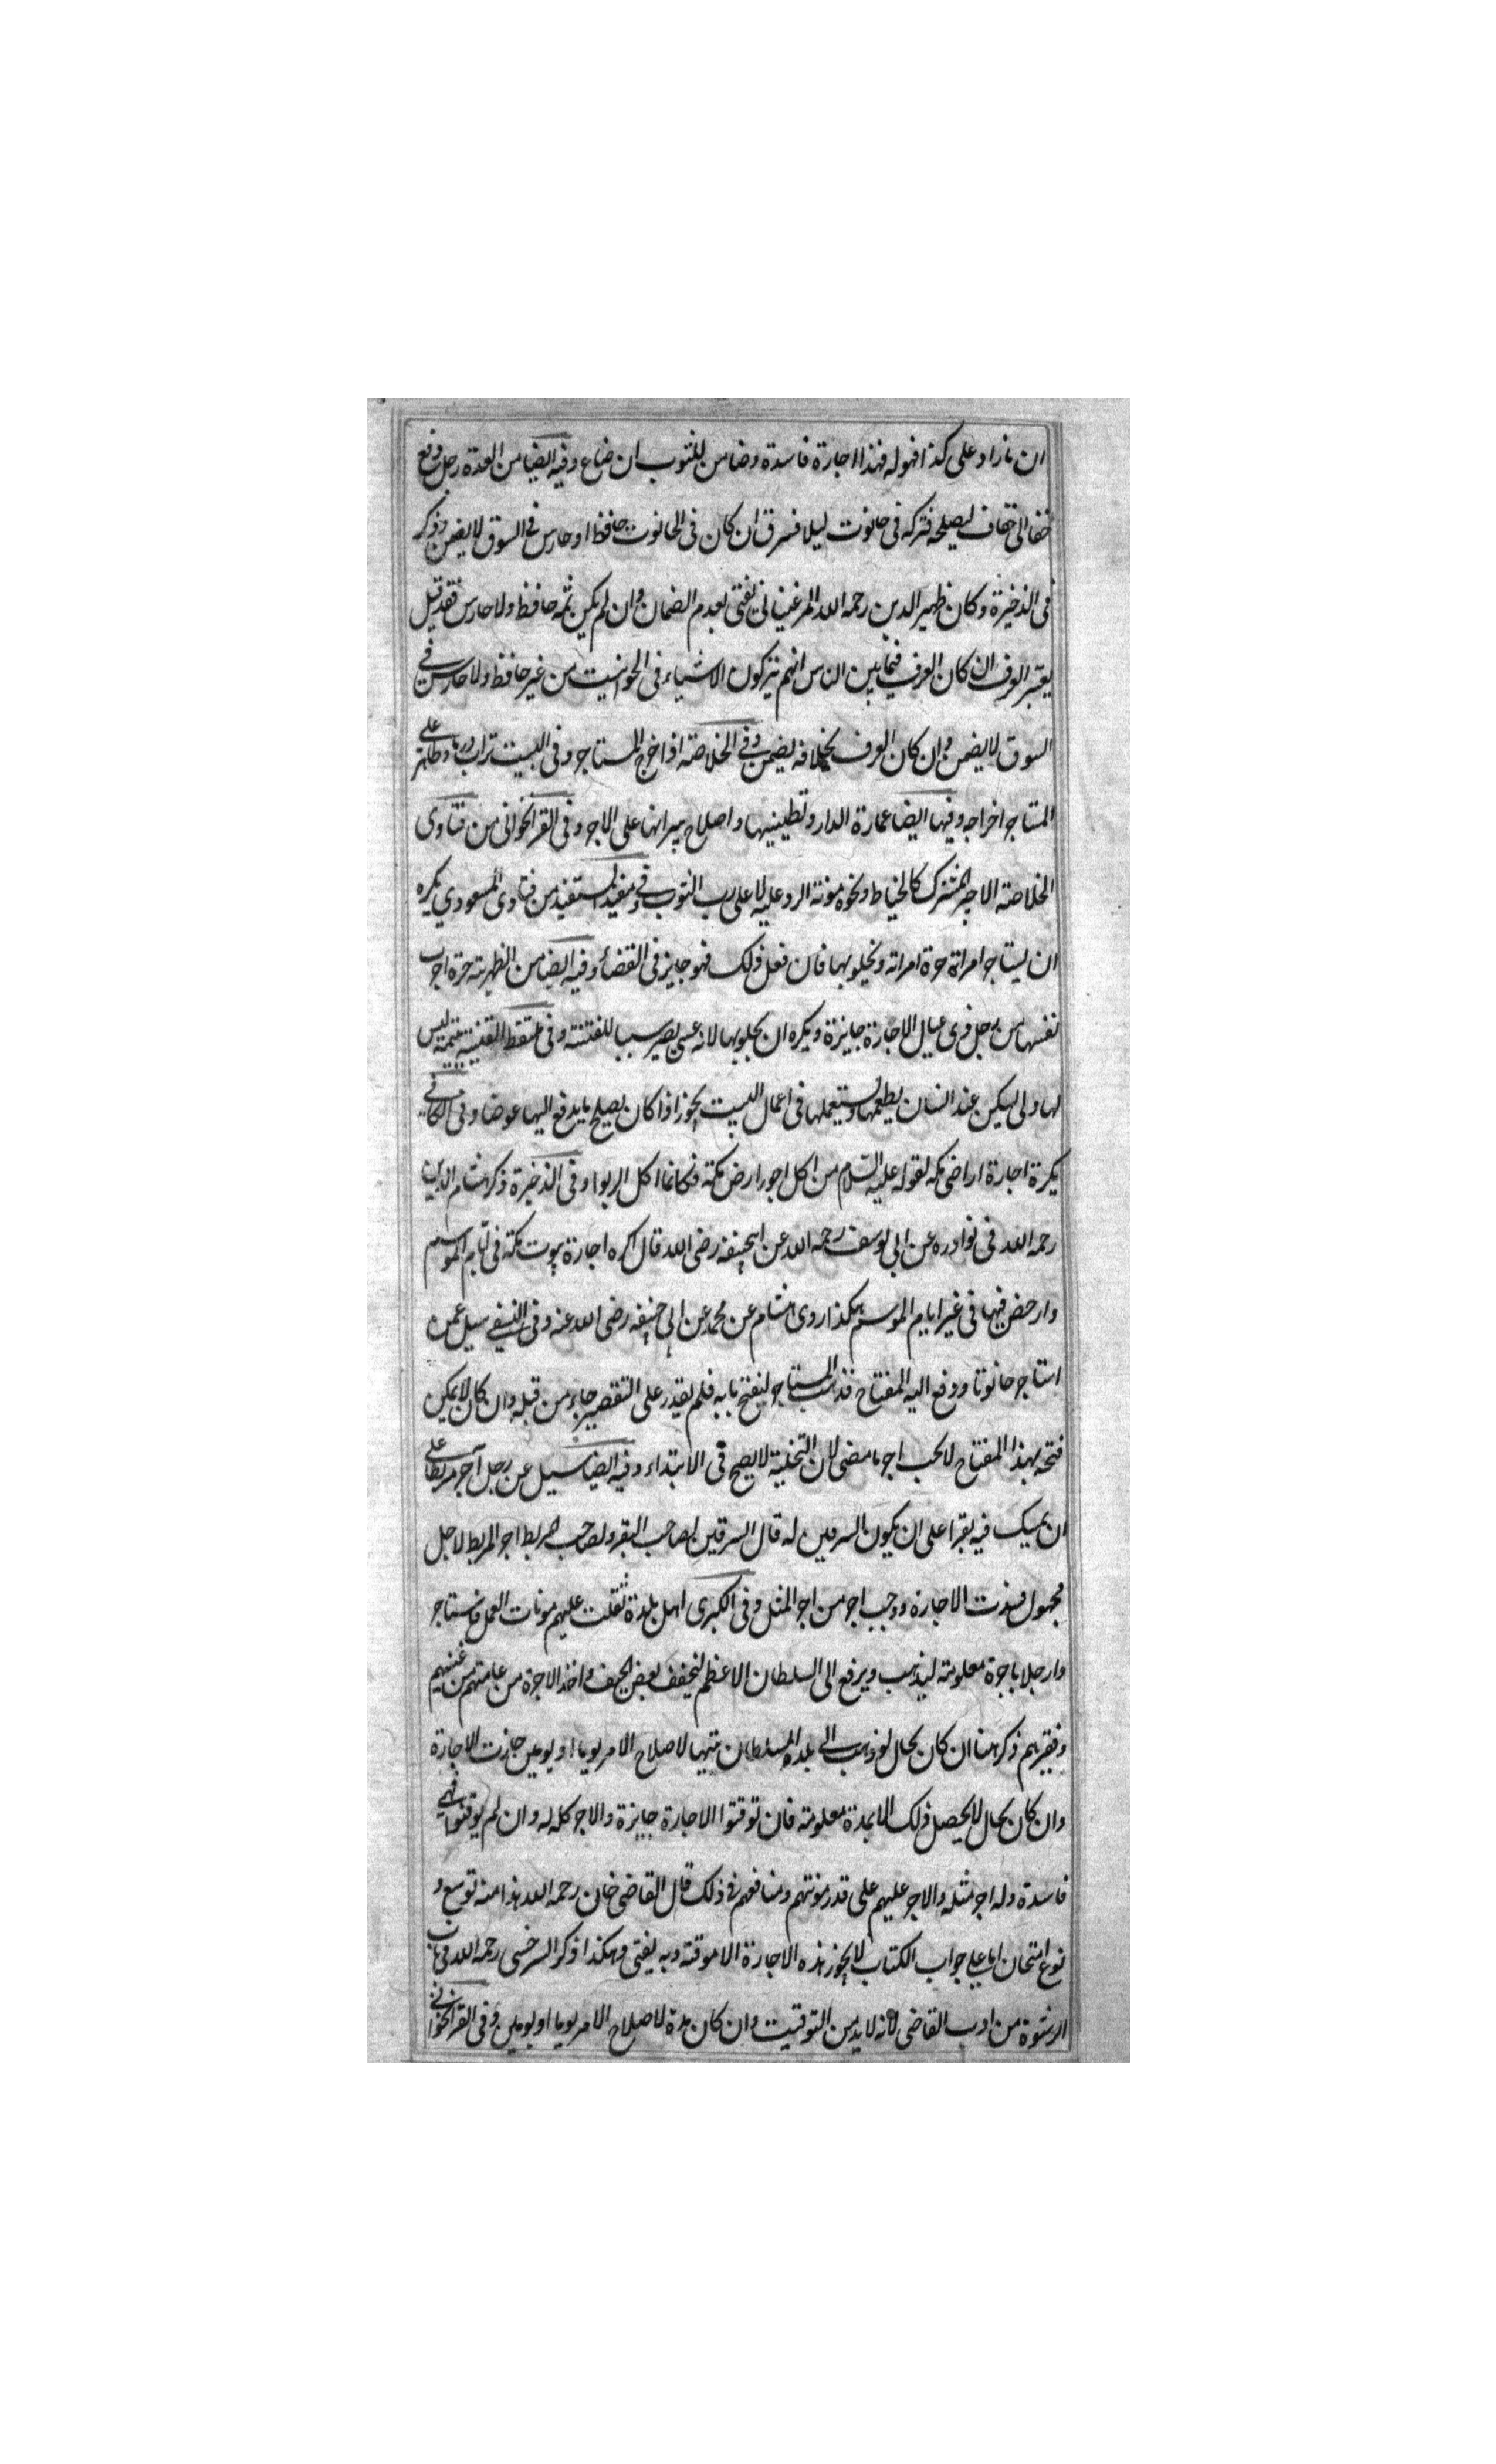 ان ما زاد على كذا فهو له فهذا اجارة فاسدة وضامن للثوب ان ضاع وفيه ايضا من العدة رجل دفع
خفا الى خفاف ليصلحه فتركه فى حانوت ليلا فسرق ان كان فى الحانوت حافظ او حارس فى السوق لا يضمن وذكر
فى الذخيرة وكان ظهير الدين رحمه الله المرغينانى يفتى بعدم الضمان وان لم يكن ثمه حافظ ولا حارس فقد قيل
يعتبر العرف ان كان العرف فيما بين الناس انهم يتركون الاشياء فى الحوانيت من غير حافظ ولا حارس فى
السوق لا يضمن وان كان العرف بخلافه يضمن وفى الخلاصة اذا خرج المستاجر وفى البيت تراب ورماد وطاهر على
المستاجر اخراجه وفيها ايضا عمارة الدار وتطيينيها واصلاح ميزابها على الاجر وفى القراخوانى من فتاوى
الخلاصة الاجير المشترك كالخياط ونحوه مونة الرد عليه لا على رب الثوب وفى مفيد المستفيد من فتاوى المسعودي يكره
ان يستاجر امراة حرة امراته ويخلو بها فان فعل ذلك فهو جايز فى القضاء وفيه ايضا من الظهيرية حرة اجرت
نفسها من رجل ذى عيال الاجارة جايزة ويكره ان يخلو بها لانه عسى يصير سببا للفتنة وفى ملتقط القنية يتيمة ليس
لها ولى يسكن عند انسان يطعمها ويستعملها فى اعمال البيت يجوز اذا كان يصلح ما يدفع اليها عوضا وفى الكافى
يكرة اجارة اراضى مكه لقوله عليه السلام من اكل اجور ارض مكة فكانما اكل الربوا وفى الذخيرة ذكر هشام الدين
رحمه الله فى نوادره عن ابى يوسف رحمه الله عن ابيحنيفه رضى الله قال اكره اجارة بيوت مكة فى ايام الموسم
وارخص فيها فى غير ايام الموسم هكذا روى هشام عن محمد عن ابى حنيفه رضى الله عنه وفى النسفى سيل عمن
استاجر حانوتا ودفع اليه المفتاح فذهب المستاجر ليفتح بابه فلم يقدر على التقصير جاء من قبله وان كان لا يمكن
فتحه بهذا المفتاح لا يجب اجر ما مضى لان التخلية لا يصح فى الابتداء وفيه ايضا سيل عن رجل آجر مربطا على
ان يمسك فيه بقرا على ان يكون السرقين له قال السرقين لصاحب البقر ولصاحب المربط اجر المربط لاجل
مجهول فسدت الاجارة ووجب اجر من اجر المثل وفى الكبرى اهل بلدة ثقلت عليهم مونات العمل فاستاجر
وا رجلا باجرة معلومة ليذهب ويرفع الى السلطان الاعظم ليخفف بعض الحيف واخذ الاجرة من عامتهم من غنيهم
وفقيرهم ذكر هنا ان كان بحال لو ذهب الى بلدة السلطان يتهيا لاصلاح الامر يوما او يومين جازت الاجارة
وان كان بحال لا يحصل ذلك الا بمدة معلومة فان توقتوا الاجارة جايزة والاجر كله له وان لم يوقتوا فهى
فاسدة وله اجر مثله والاجر عليهم على قدر مونتهم ومنافعهم فى ذلك قال القاضى خان رحمه الله هذا منه توسع و
نوع امتحان اما على جواب الكتاب لا يجوز هذه الاجارة الا موقتة وبه يفتى وهكذا ذكر السرخسى رحمه الله فى باب
الرشوة من ادب القاضى لانه لا بد من التوقيت وان كان مدة لاصلاح الامر يوما او يومين وفى القراخوانى